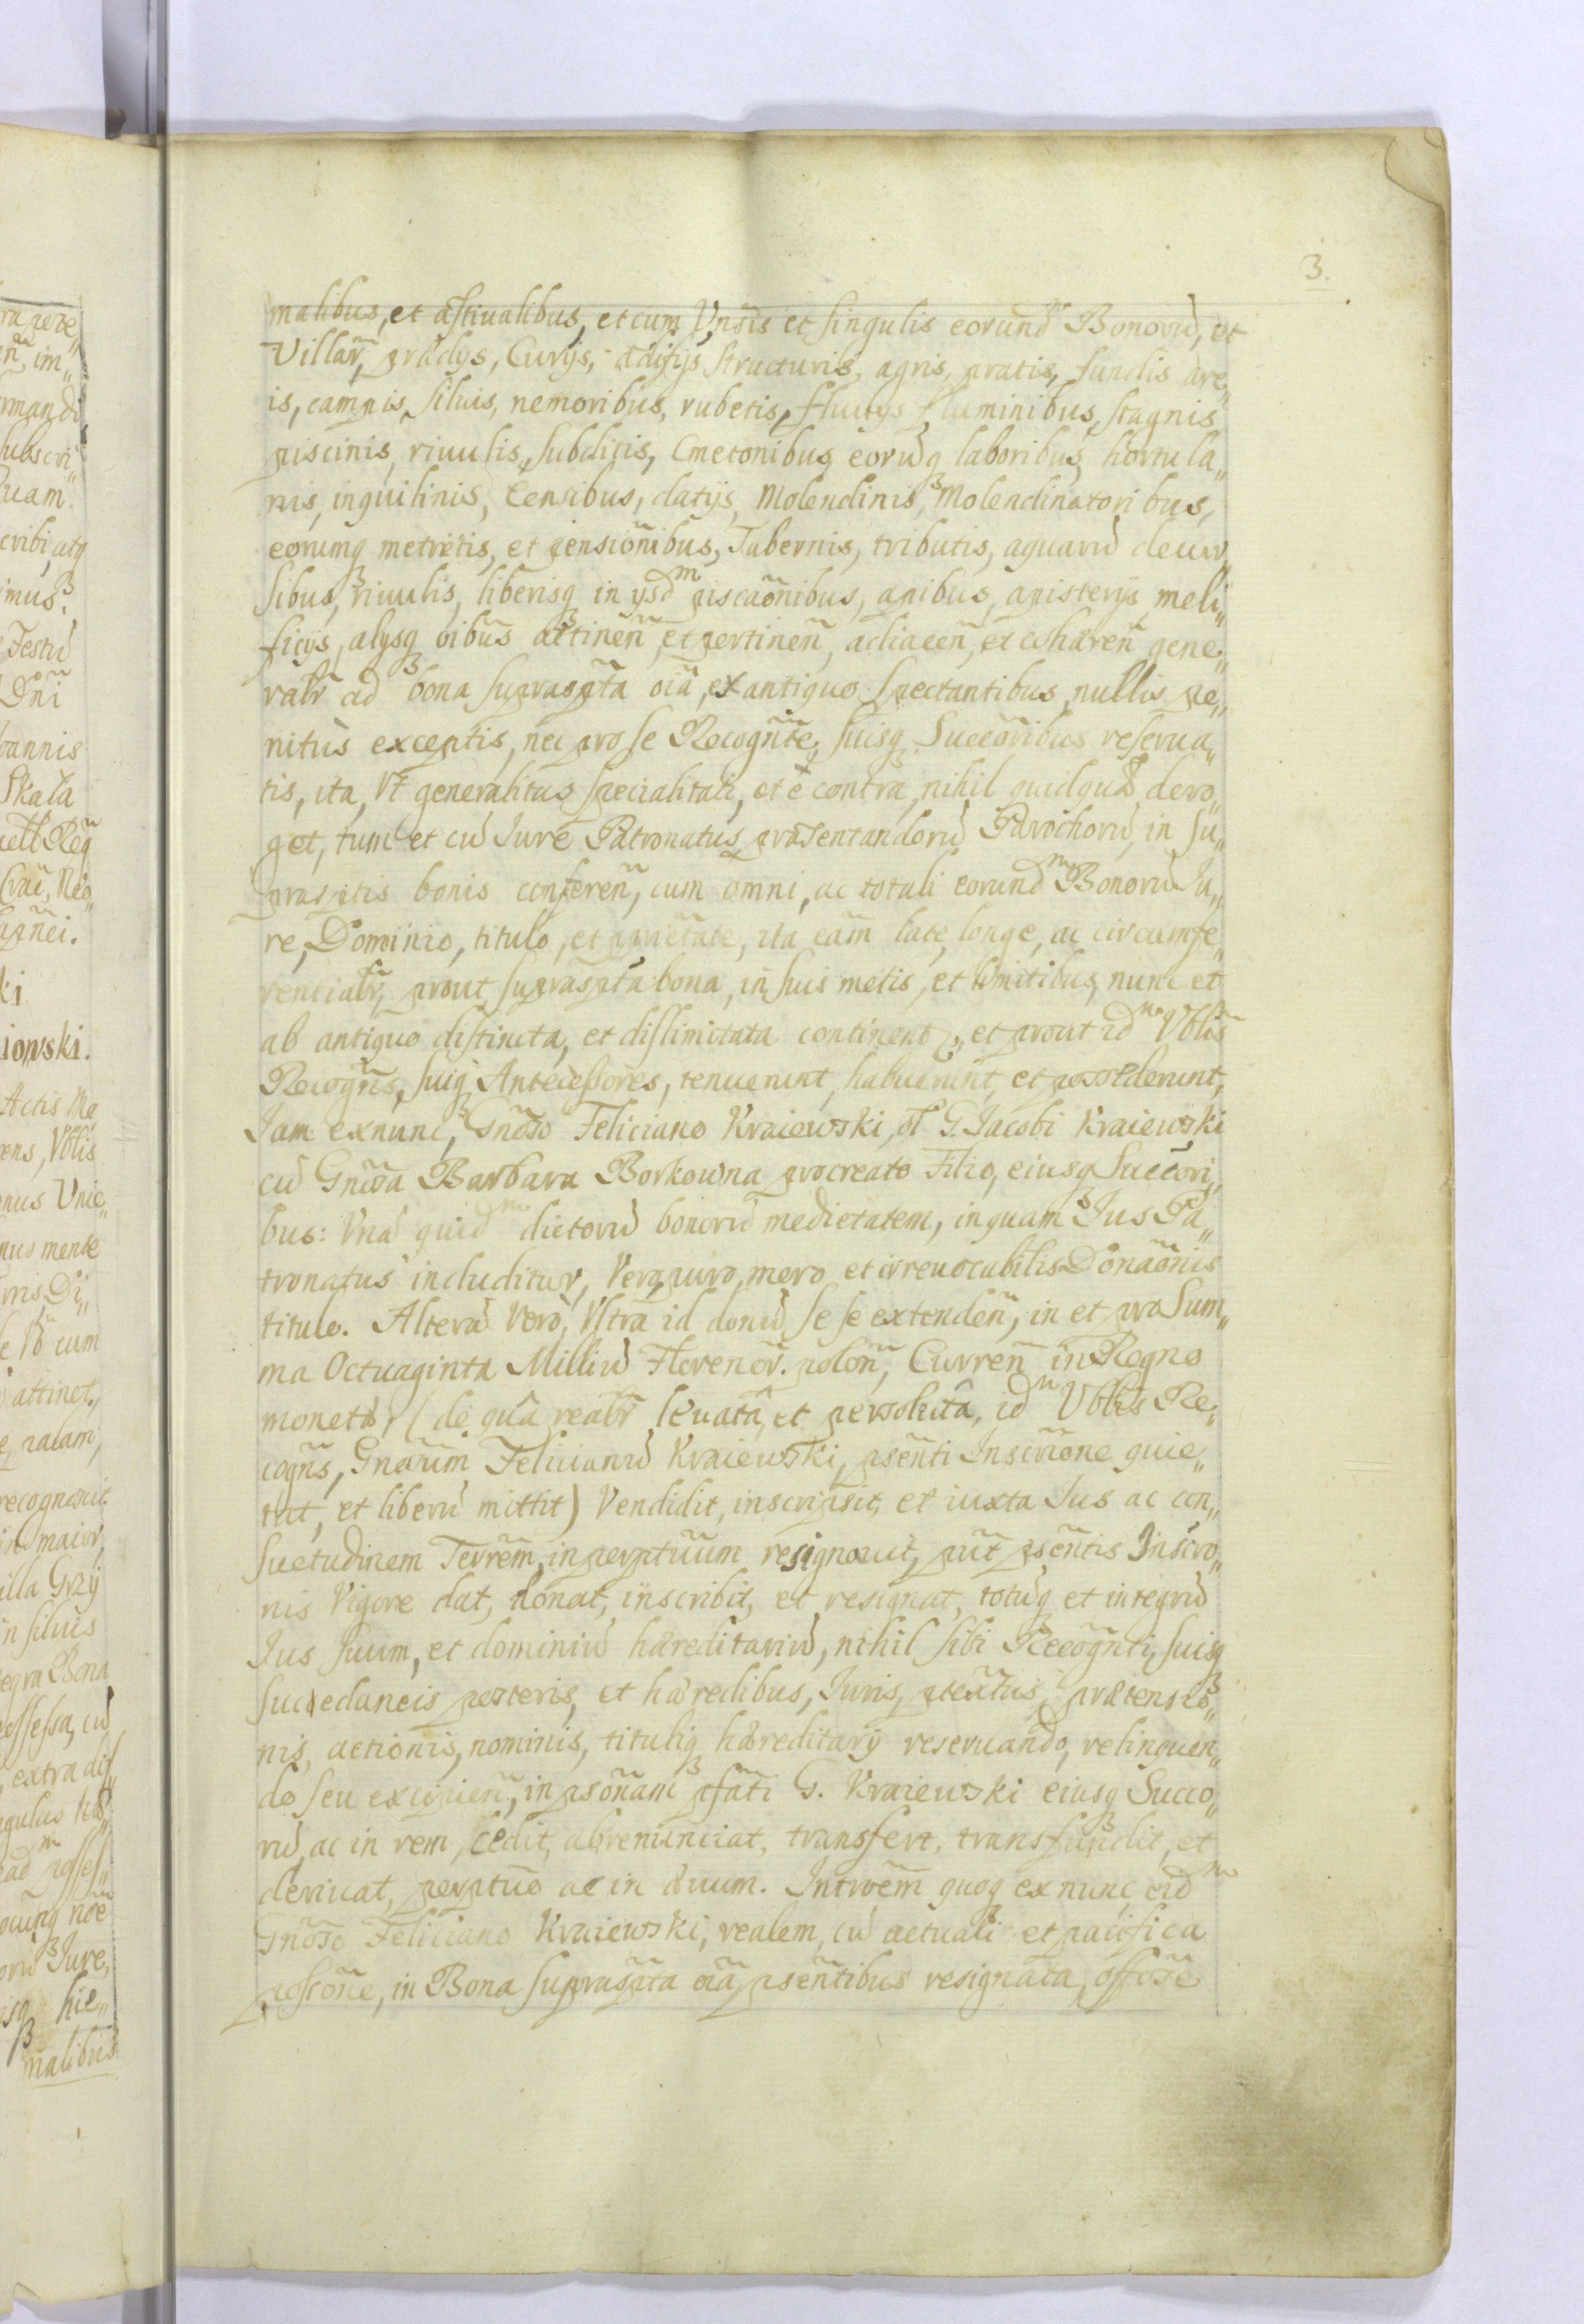 3.
malibus, et æstiualibus, et cum Vnĩsis et singulis eorund̃ Bonorũ, et
Villar̃, prædijs, Curijs, ædificijs structuris, agris, pratis, fundis are„
is, campis, siluis, nemoribus, rubetis, fluuijs fluminibus, stagnis
piscinis, riuulis, subditis, Cmetonibus eorũq3 laboribus, hortula„
nis, inquilinis, Censibus, datijs, Molendinis, Molendinatoribus,
eorumq3 metretis, et pensiõnibus, Tabernis, tributis, aquarũ decur„
sibus, riuulis, liberisq3 in ijsdm piscaõnibus, apibus, apisterijs meli„
ficijs, alijsq3 õibus attineñ, et pertineñ, adiaceñ, et cohæreñ gene„
ralr̃ ad bona suprasp̃ta oĩa, ex antiquo spectantibus, nullis pe„
nitùs exceptis, nec pro se Recogñte, suisq3 Succõribus reserua„
tis, ita, Vt generalitas specialitati, et è contra, nihil quidquã dero„
get, tum et cũ Iure Patronatus præsentandorũ Parochorũ, in su„
prasp̃tis bonis confereñ, cum omni, ac totali eorundm Bonorũ Iu„
re, Dominio, titulo, et prietate, ita eãm late, longe, ac circumfe„
rentialr̃, prout suprasp̃ta bona, in suis metis, et limitibus, nunc et
ab antiquo distincta, et dislimitata continent2, et prout idm Vblis̃
Recogñs, suiq3 Antecessores, tenuerunt, habuerunt, et possederunt,
Iam exnunc, Gnõso Feliciano Kraiewski, ol̃ G. Iacobi Kraiewski
cũ Gnõsa Barbara Borkowna procreato Filio, eiusq3 Succõri„
bus: Vnã quidm dictorũ bonorũ medietatem, in quam Ius Pa„
tronatus includitur, Vero, puro, mero et irreuocabilis Donaõnis
titulo. Alterã Verò, Vltra id donũ se se extendeñ, in et pro Sum„
ma Octuaginta Milliũ Florenor̃. poloñ, Curreñ in Regno
monetæ, (de quâ realr̃ leuatâ, et persolutâ, idm Vblis Re„
cogñs, Gnõsum Felicianũ Kraiewski, p̃senti Inscriõne quie„
tat, et liberũ mittit) Vendidit, inscripsit, et iuxta Ius ac con„
suetudinem Terrẽm, in perptũum resignauit, pũt p̃sentis Inscrõ„
nis Vigore dat, donat, inscribit, et resignat, totũq3 et integrũ
Ius suum, et dominiũ hæreditariũ, nihil sibi Recogñti, suisq3
succedaneis posteris, et hæredibus, Iuris, p̃textus, prætensio„
nis, actionis, nominis, tituliq3 hæreditarij reseruando, relinquen„
do seu excipieñ, in p̃sonam p̃fati G. Kraiewski eiusq3 Succo„
rũ, ac in rem, cedit, abrenunciat, transfert, transfundit, et
deriuat, perptũo ac in æuum. Introẽm quoq3 ex nunc eidm
Gnõso Feliciano Kraiewski, realem, cũ actuali et pacifica
possõne, in Bona suprasp̃ta oĩa p̃sentibus resignata, offõse